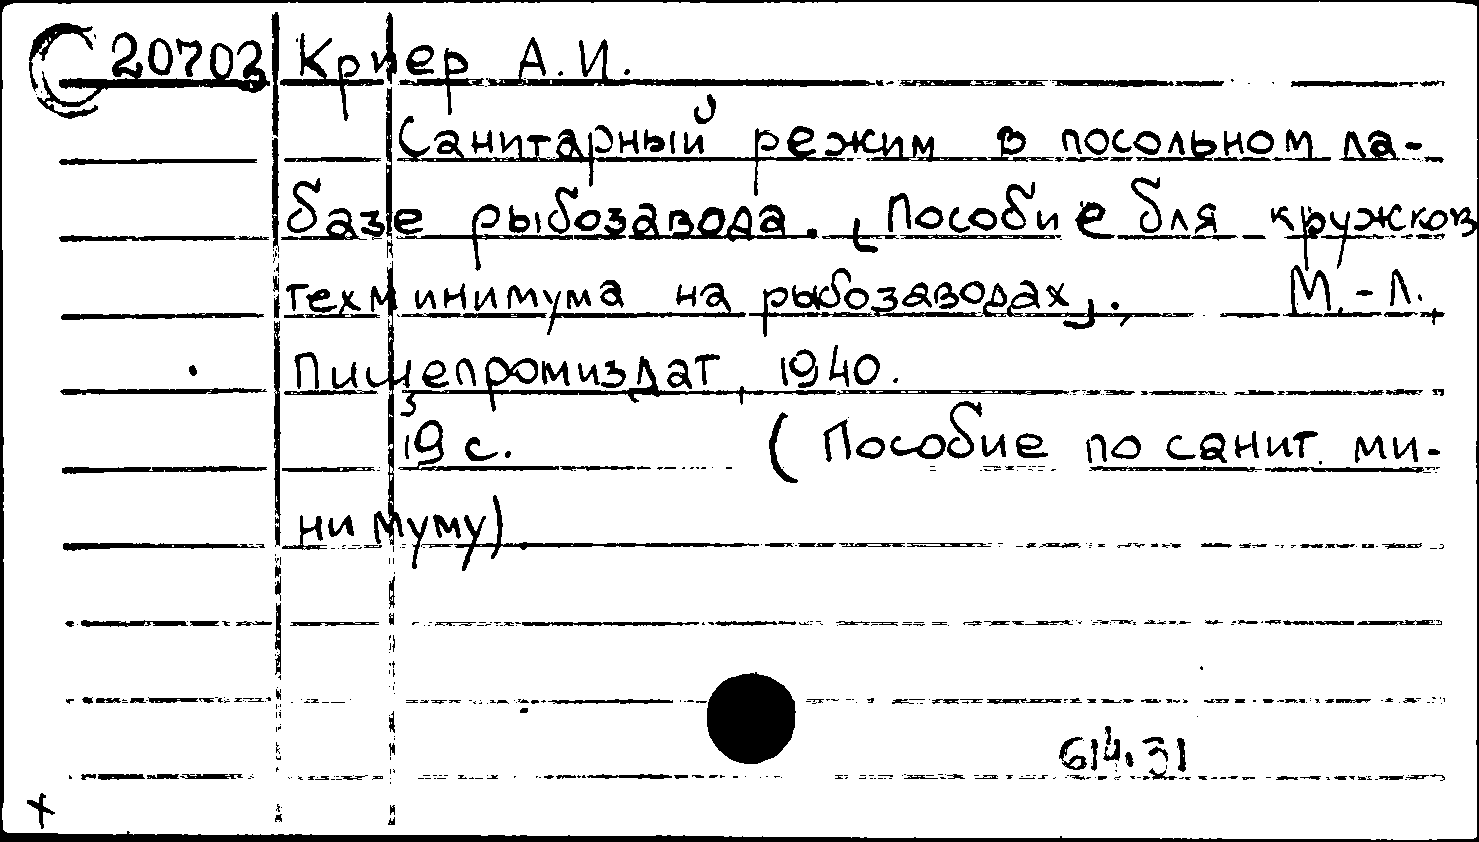 20702 Криер А.И.
Санитарный режим в посольном ла-
базе рыбозавода. [Пособие для кружков
техминимума на рыбозаводах]. М.-Л.,
Пищепромиздат, 1940.
19 с. (Пособие по санит. ми-
нимуму).
614.31